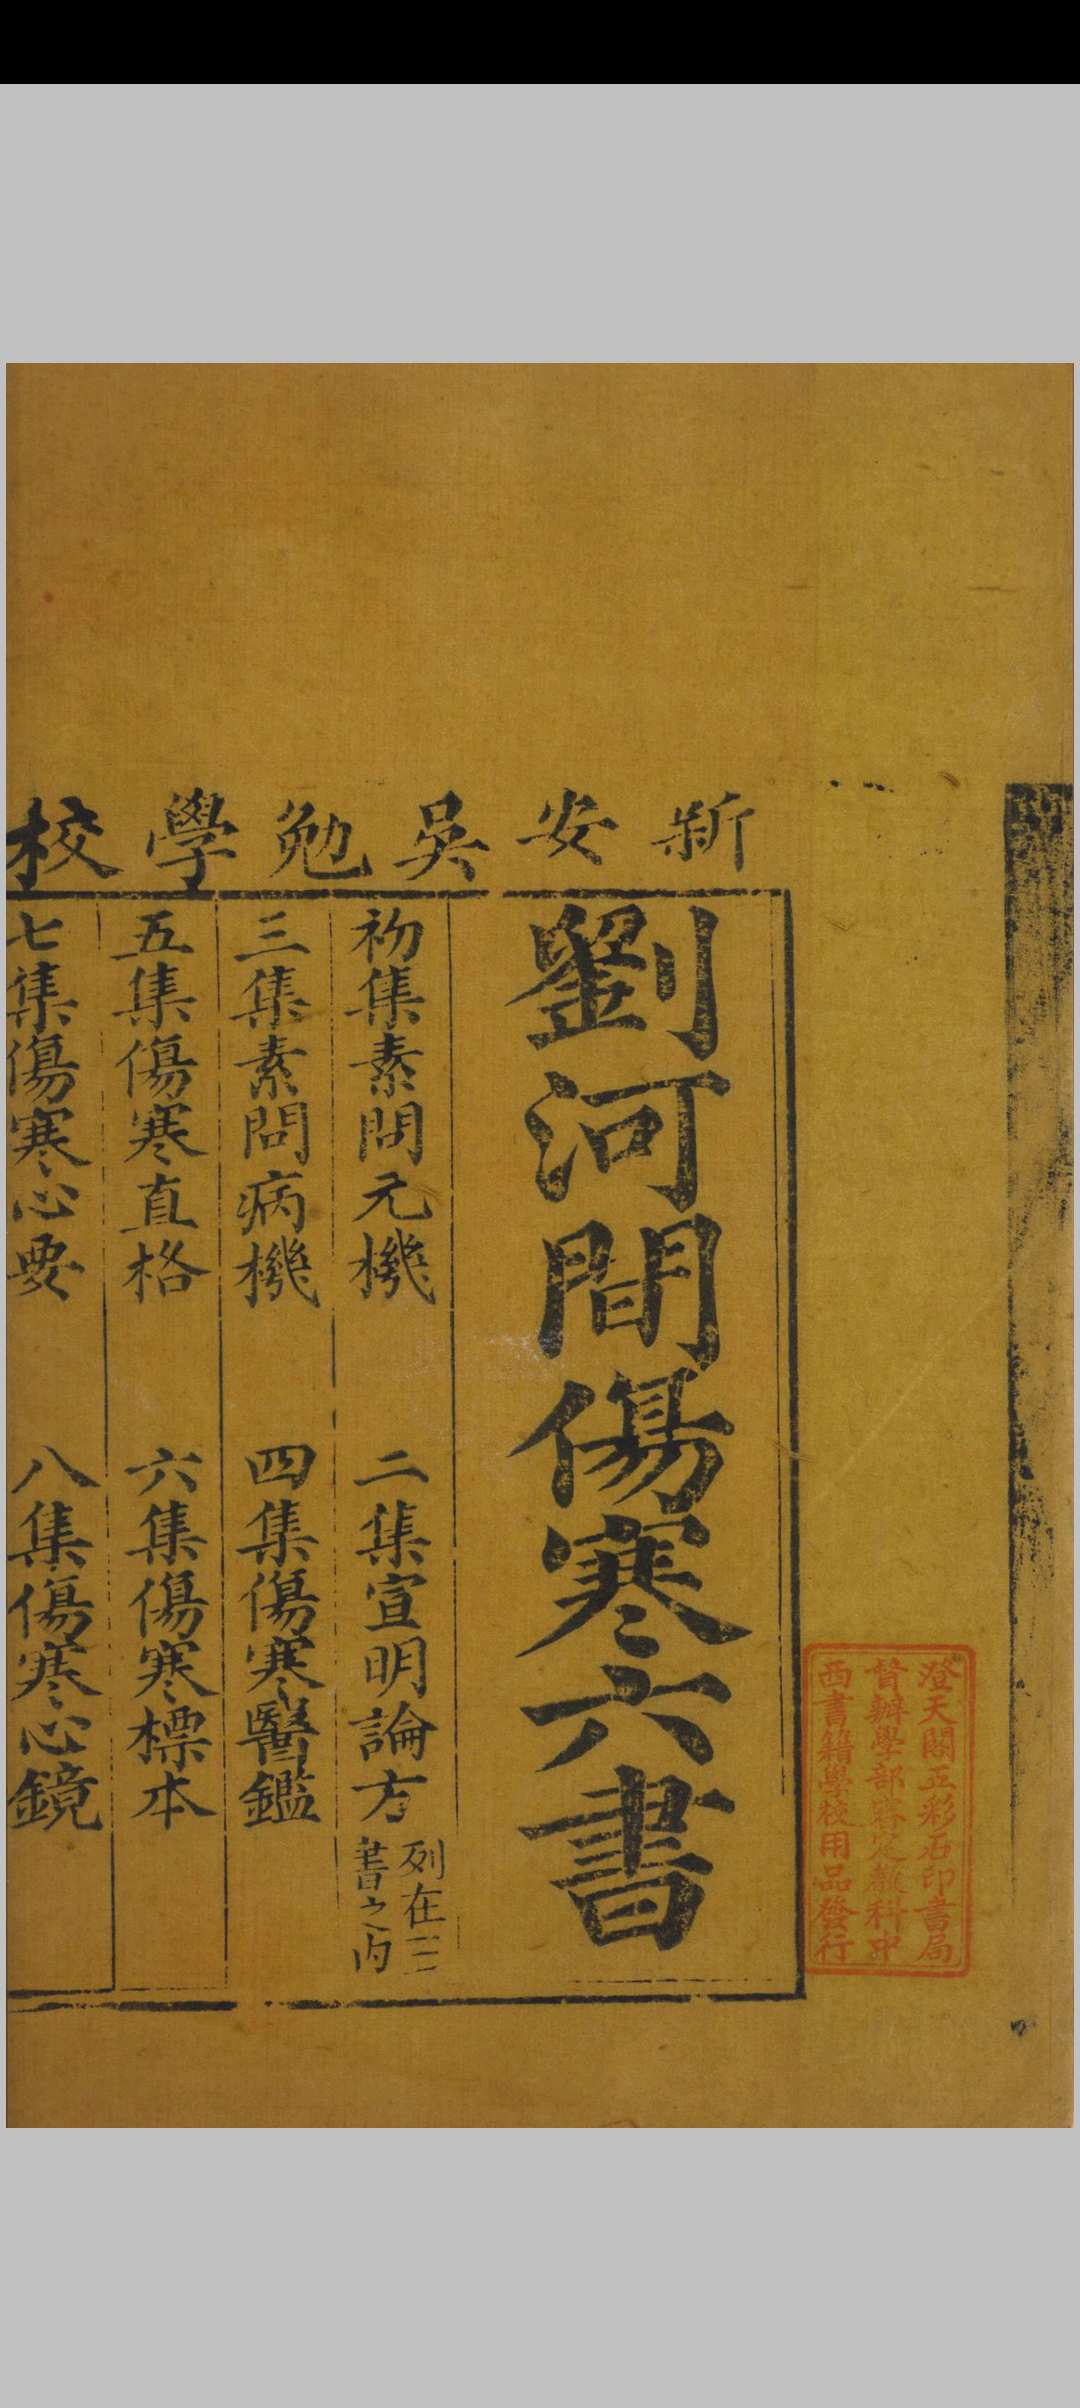 新安吳勉學校
劉河間傷寒六書
初集素問元機
二集宣明論方
列在三
書之內
三集素問病機
四集傷寒醫鑑
五集傷寒直格
六集傷寒標本
七集傷寒心要
八集傷寒心鏡
澄天閣五彩石印書局
督辦學部審定教科中
西書籍學校用品發行